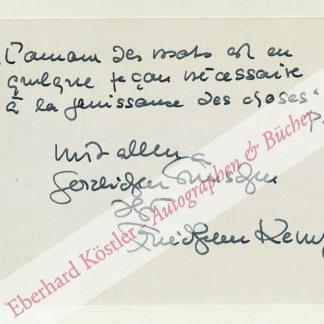 „L'amour des mots est en
quelque façon nécessaire
à la jouissance des choses“
Mit allen
herzlichen Wünschen
Ihr
Friedhelm Kemp
Eberhard Köstler Autographen & Bücher